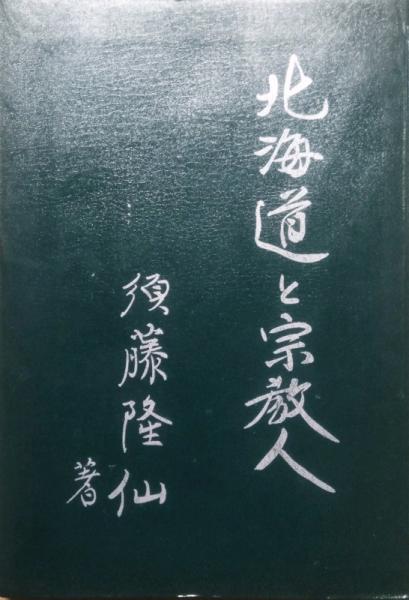 北海道と宗教人
須藤隆仙
著